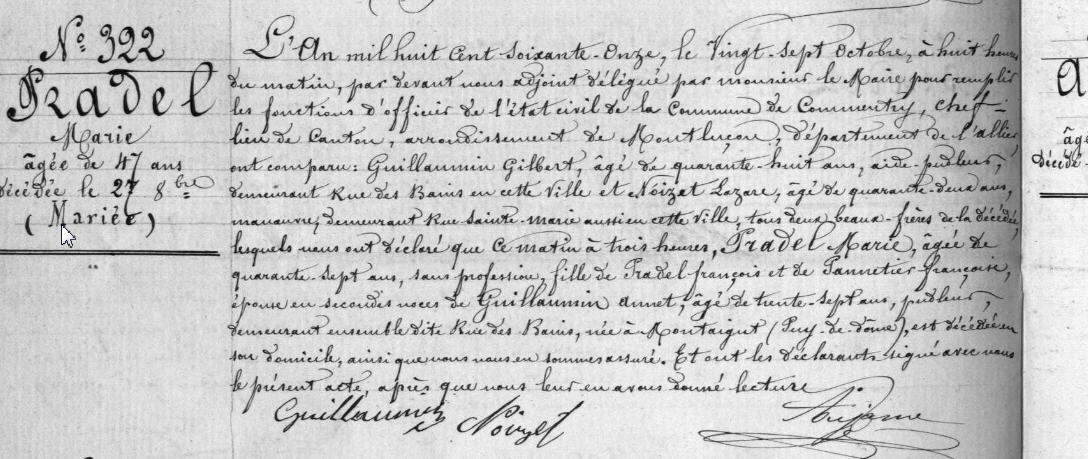 N° 322
Pradel
Marie
âgée de 47 ans
décédée le 27 8bre
(Mariée)
L'An mil huit Cent Soixante-Onze, le Vingt-Sept Octobre, à huit heures
du matin, par devant nous adjoint délégué par monsieur le Maire pour remplir
les fonctions d'officier de l'état civil de la Commune de Commentry, chef-
lieu de Canton, arrondissement de Montluçon, département de l'allier,
ont comparu: Guillaumin Gilbert, âgé de quarante-huit ans, aide-pudleur,
demeurant Rue des Bains en cette Ville et Noizet Lazare, âgé de quarante-deux ans,
manœuvre, demeurant Rue Sainte-marie aussi en cette Ville, tous deux beaux-frères de la décédée,
lesquels nous ont déclaré que Ce matin à trois heures, Pradel Marie, âgée de
quarante-sept ans, sans profession, fille de Pradel françois et de Pannetier françoise,
épouse en secondes noces de Guillaumin annet, âgé de trente-sept ans, pudleur,
demeurant ensemble dite Rue des Bains, née à Montaigut (Puy-de-dôme), est décédée en
son domicile, ainsi que nous nous en sommes assuré. Et ont les déclarants signé avec nous
le présent acte, après que nous leur en avons donné lecture
Guillaumin Noizet
a
âgé
décédé